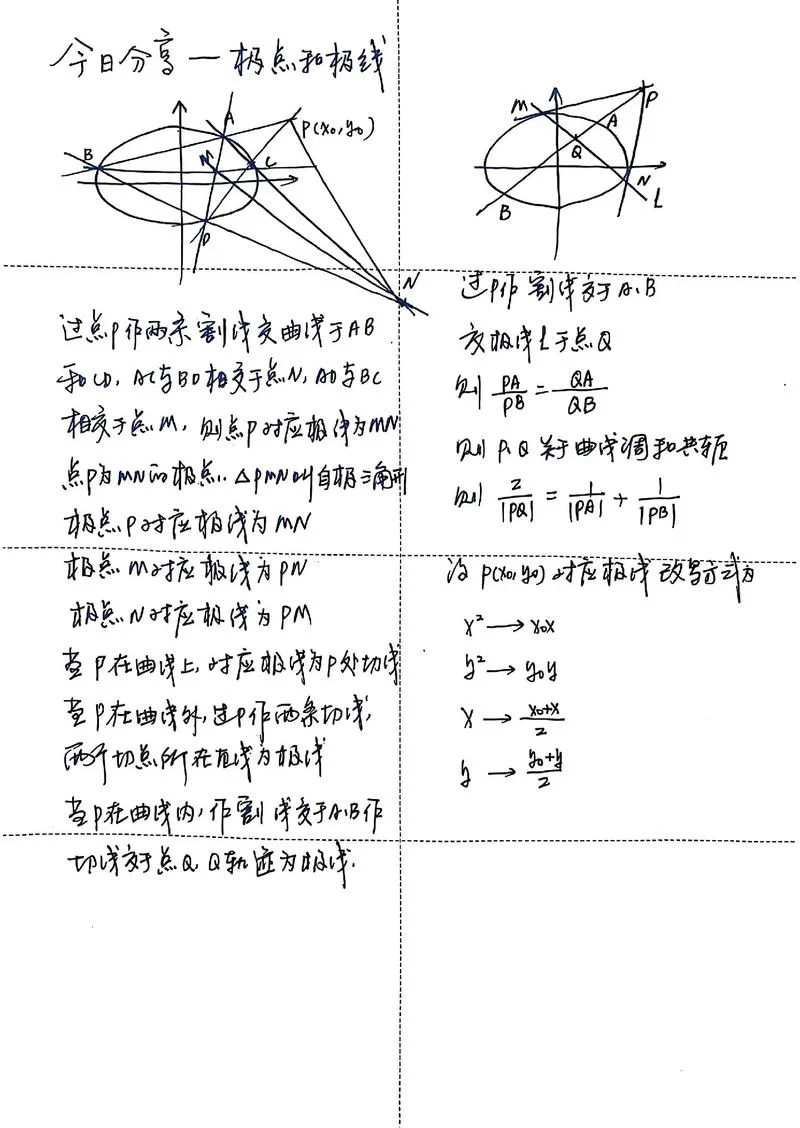 今日分享一极点和极线
A
P(x₀,y₀)
B
M
C
D
N
过点P作两条割线交曲线于AB
和CD, AC与BD相交于点N, AD与BC
相交于点M, 则点P对应极线为MN
点P为MN的极点. △PMN叫自极三角形
极点P对应极线为MN
极点M对应极线为PN
极点N对应极线为PM
当P在曲线上, 对应极线为P处切线
当P在曲线外, 过P作两条切线,
两个切点所在直线为极线
当P在曲线内, 作割线交于A.B作
切线交于点Q Q轨迹为极线.
M
P
A
Q
N
B
L
过P作割线交于A.B
交极线l于点Q
则 PA/PB = QA/QB
则P.Q关于曲线调和共轭
则 2/|PQ| = 1/|PA| + 1/|PB|
设P(x₀,y₀)对应极线改写方式为
x² → x₀x
y² → y₀y
x → x₀+x/2
y → y₀+y/2